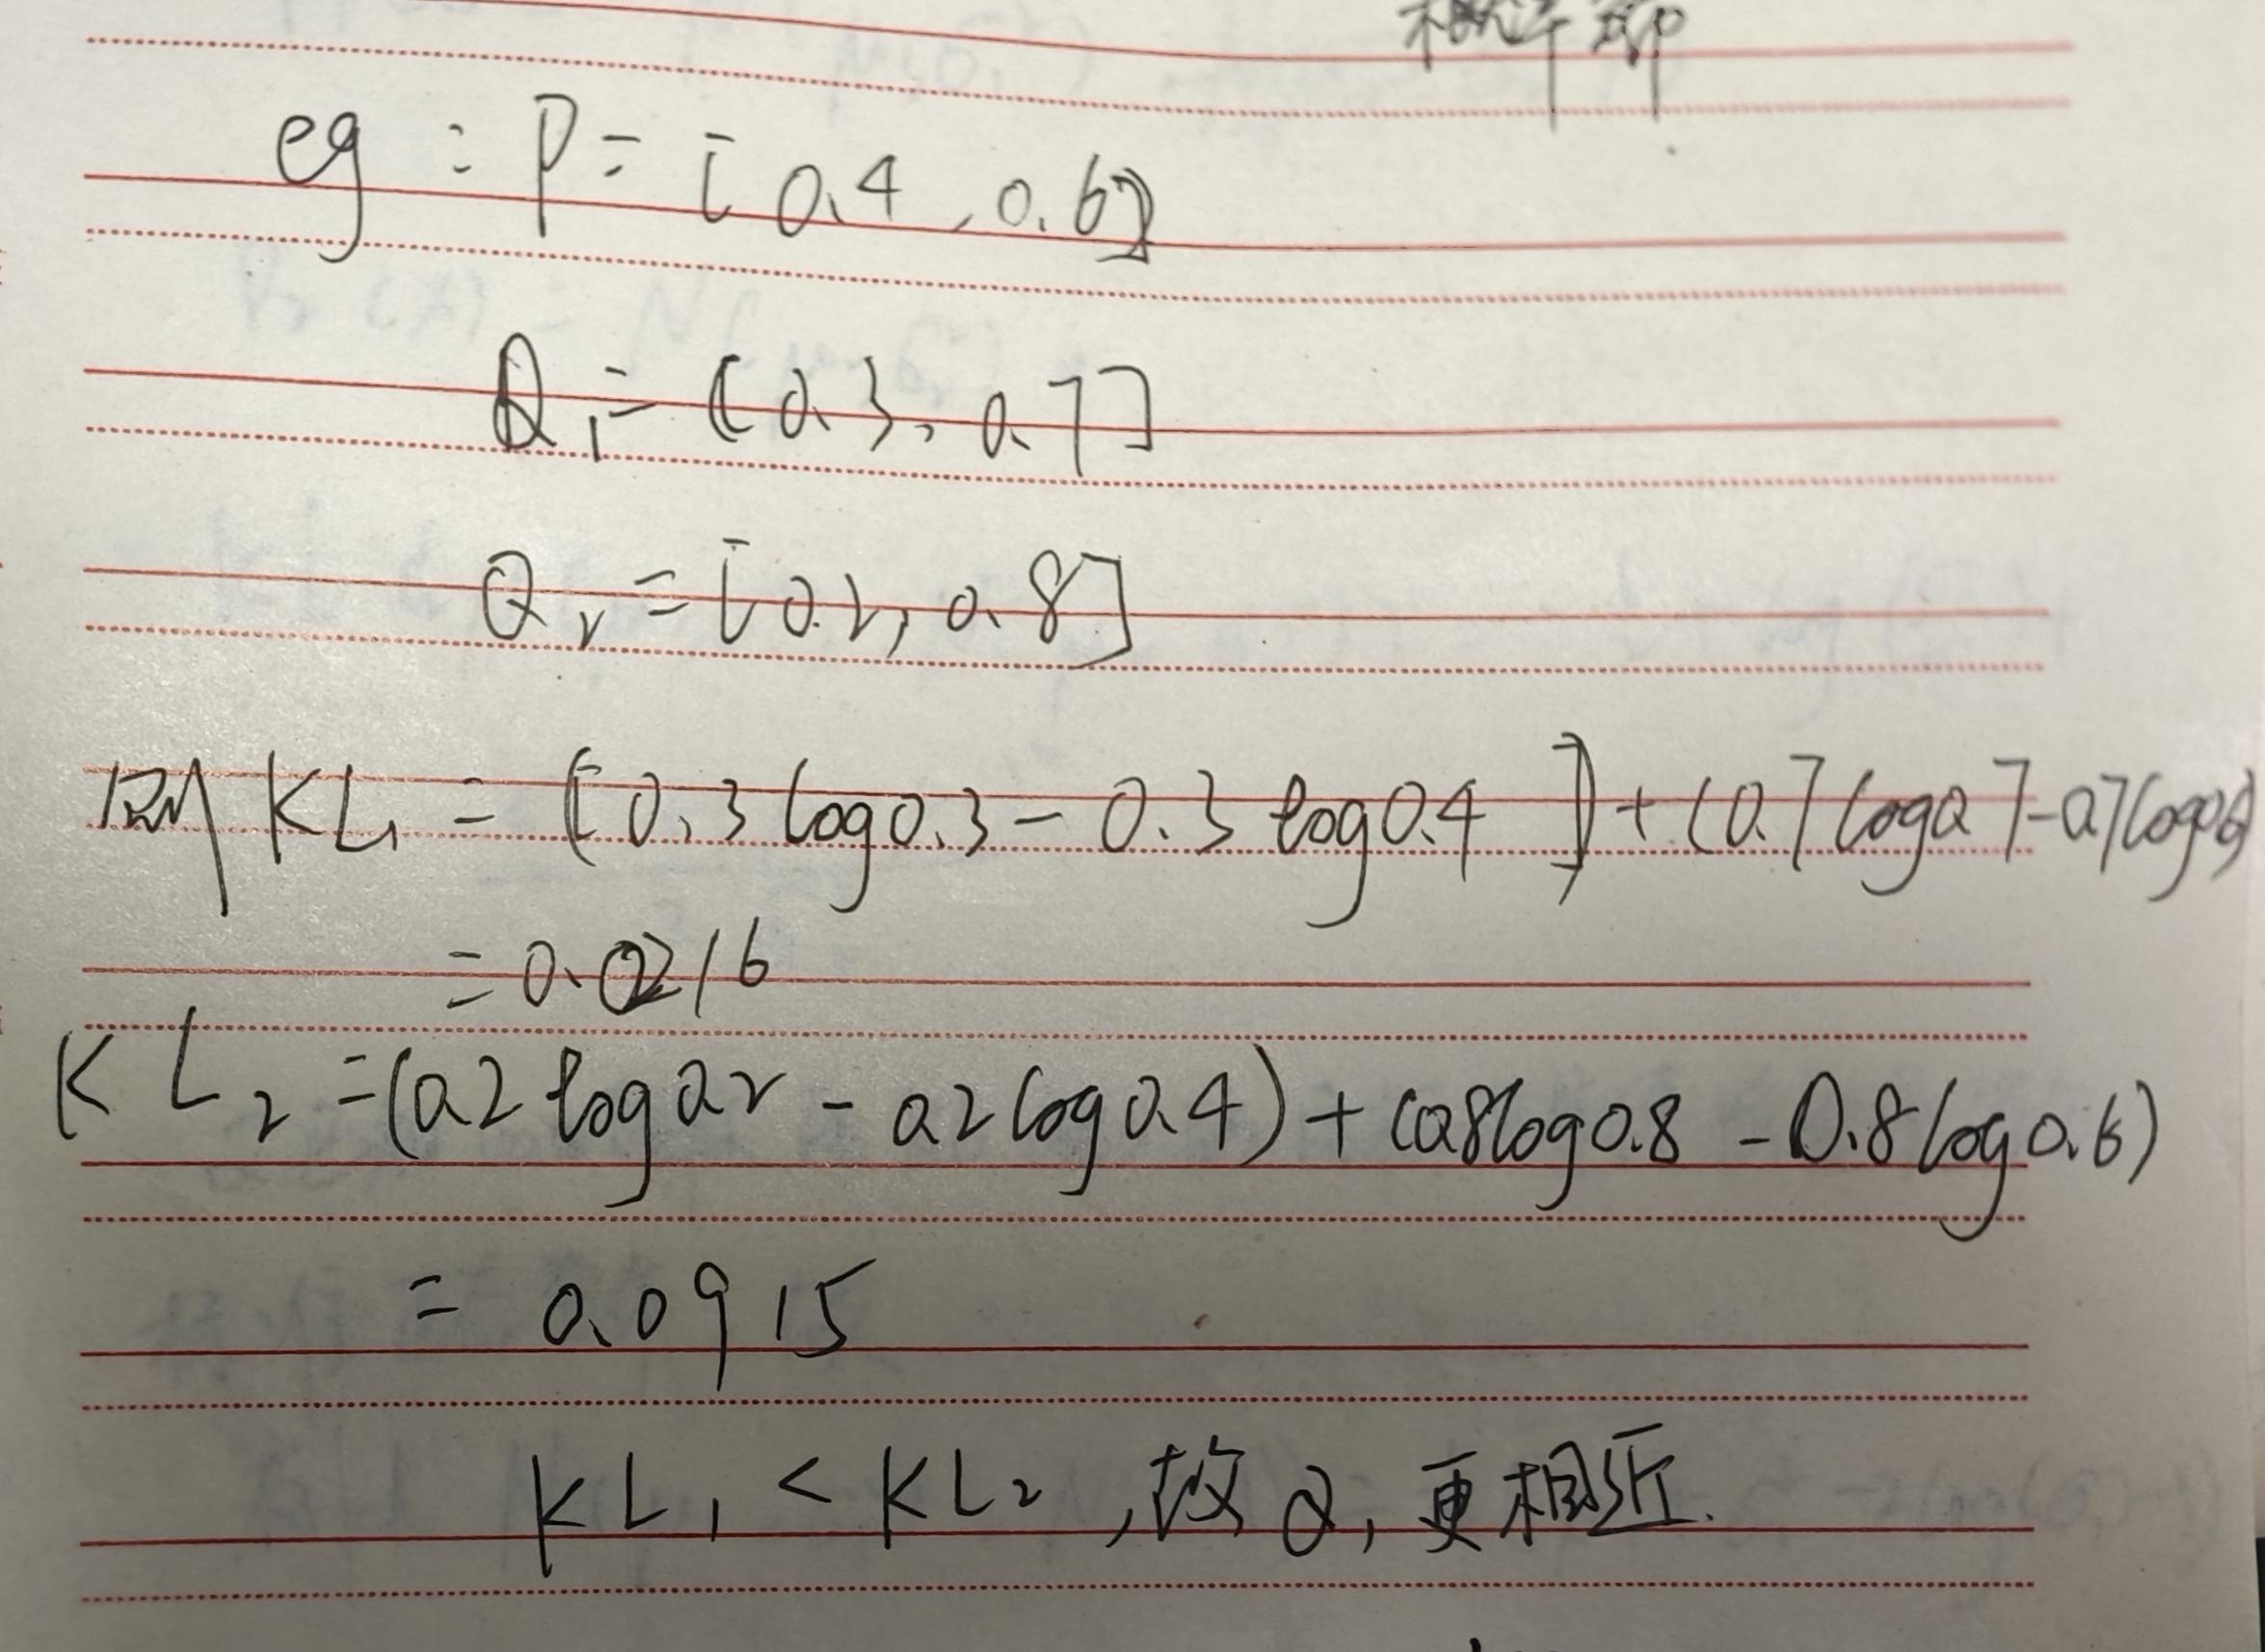 eg : P = [0.4, 0.6]
Q₁ = [0.3, 0.7]
Q₂ = [0.2, 0.8]
则 KL₁ = [0.3 log0.3 - 0.3 log0.4] + (0.7 log0.7 - 0.7 log0.6)
= 0.0216
KL₂ = (0.2 log0.2 - 0.2 log0.4) + (0.8 log0.8 - 0.8 log0.6)
= 0.0915
KL₁ < KL₂, 故 Q₁ 更相近.